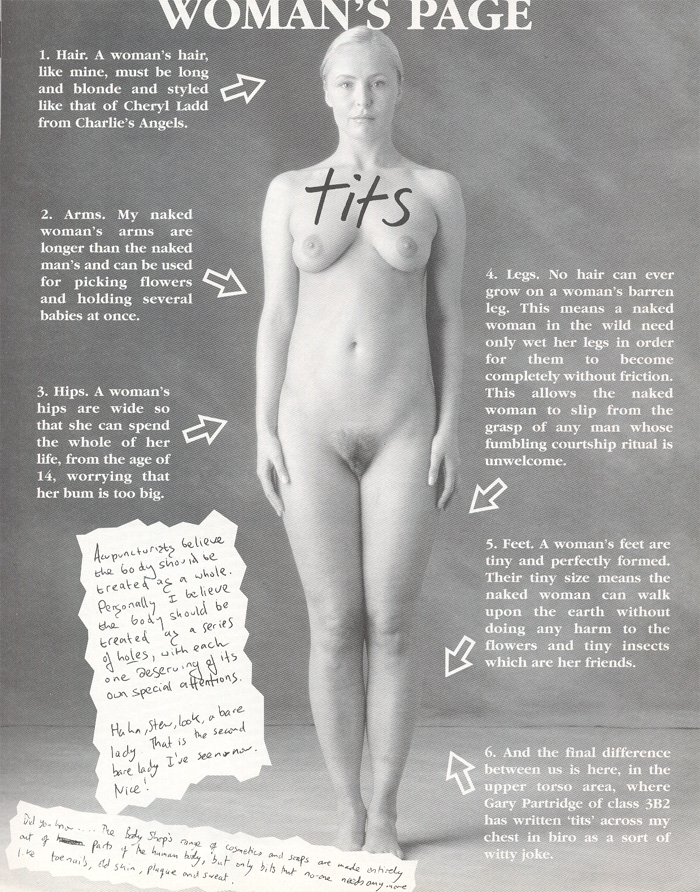 WOMAN'S PAGE
1. Hair. A woman's hair,
like mine, must be long
and blonde and styled
like that of Cheryl Ladd
from Charlie's Angels.
tits
2. Arms. My naked
woman's arms are
longer than the naked
man's and can be used
for picking flowers
and holding several
babies at once.
3. Hips. A woman's
hips are wide so
that she can spend
the whole of her
life, from the age of
14, worrying that
her bum is too big.
4. Legs. No hair can ever
grow on a woman's barren
leg. This means a naked
woman in the wild need
only wet her legs in order
for them to become
completely without friction.
This allows the naked
woman to slip from the
grasp of any man whose
fumbling courtship ritual is
unwelcome.
5. Feet. A woman's feet are
tiny and perfectly formed.
Their tiny size means the
naked woman can walk
upon the earth without
doing any harm to the
flowers and tiny insects
which are her friends.
6. And the final difference
between us is here, in the
upper torso area, where
Gary Partridge of class 3B2
has written 'tits' across my
chest in biro as a sort of
witty joke.
Acupuncturists believe
the body should be
treated as a whole.
Personally I believe
the body should be
treated as a series
of holes, with each
one deserving of its
own special attentions.
Ha ha, Stew, look, a bare
lady. That is the second
bare lady I've seen now.
Nice!
Did you know.... The Body Shop's range of cosmetics and soaps are made entirely
out of parts of the human body, but only bits that no-one needs any more
like toenails, old skin, plaque and sweat.